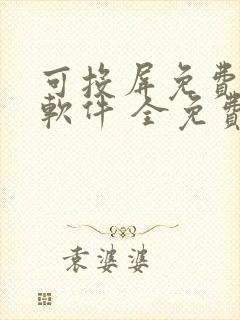 可投屏免費
軟件 全免費
袁婆婆